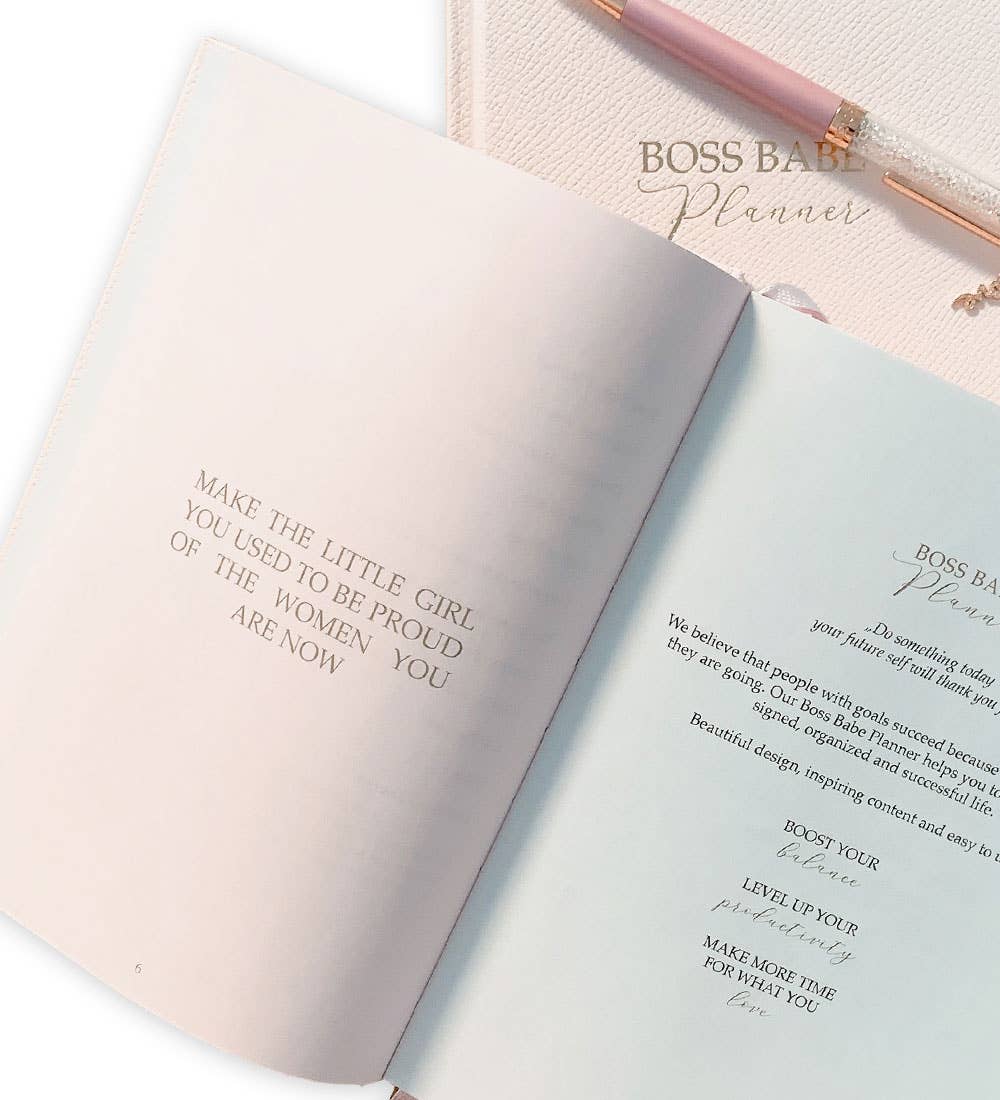 BOSS BABE
Planner
MAKE THE LITTLE GIRL
YOU USED TO BE PROUD
OF THE WOMEN YOU
ARE NOW
6
BOSS
„Do something today
your future self will thank you
We believe that people with goals succeed because
they are going. Our Boss Babe Planner helps you to
signed, organized and successful life.
Beautiful design, inspiring content and easy to
BOOST YOUR
balance
LEVEL UP YOUR
productivity
MAKE MORE TIME
FOR WHAT YOU
love